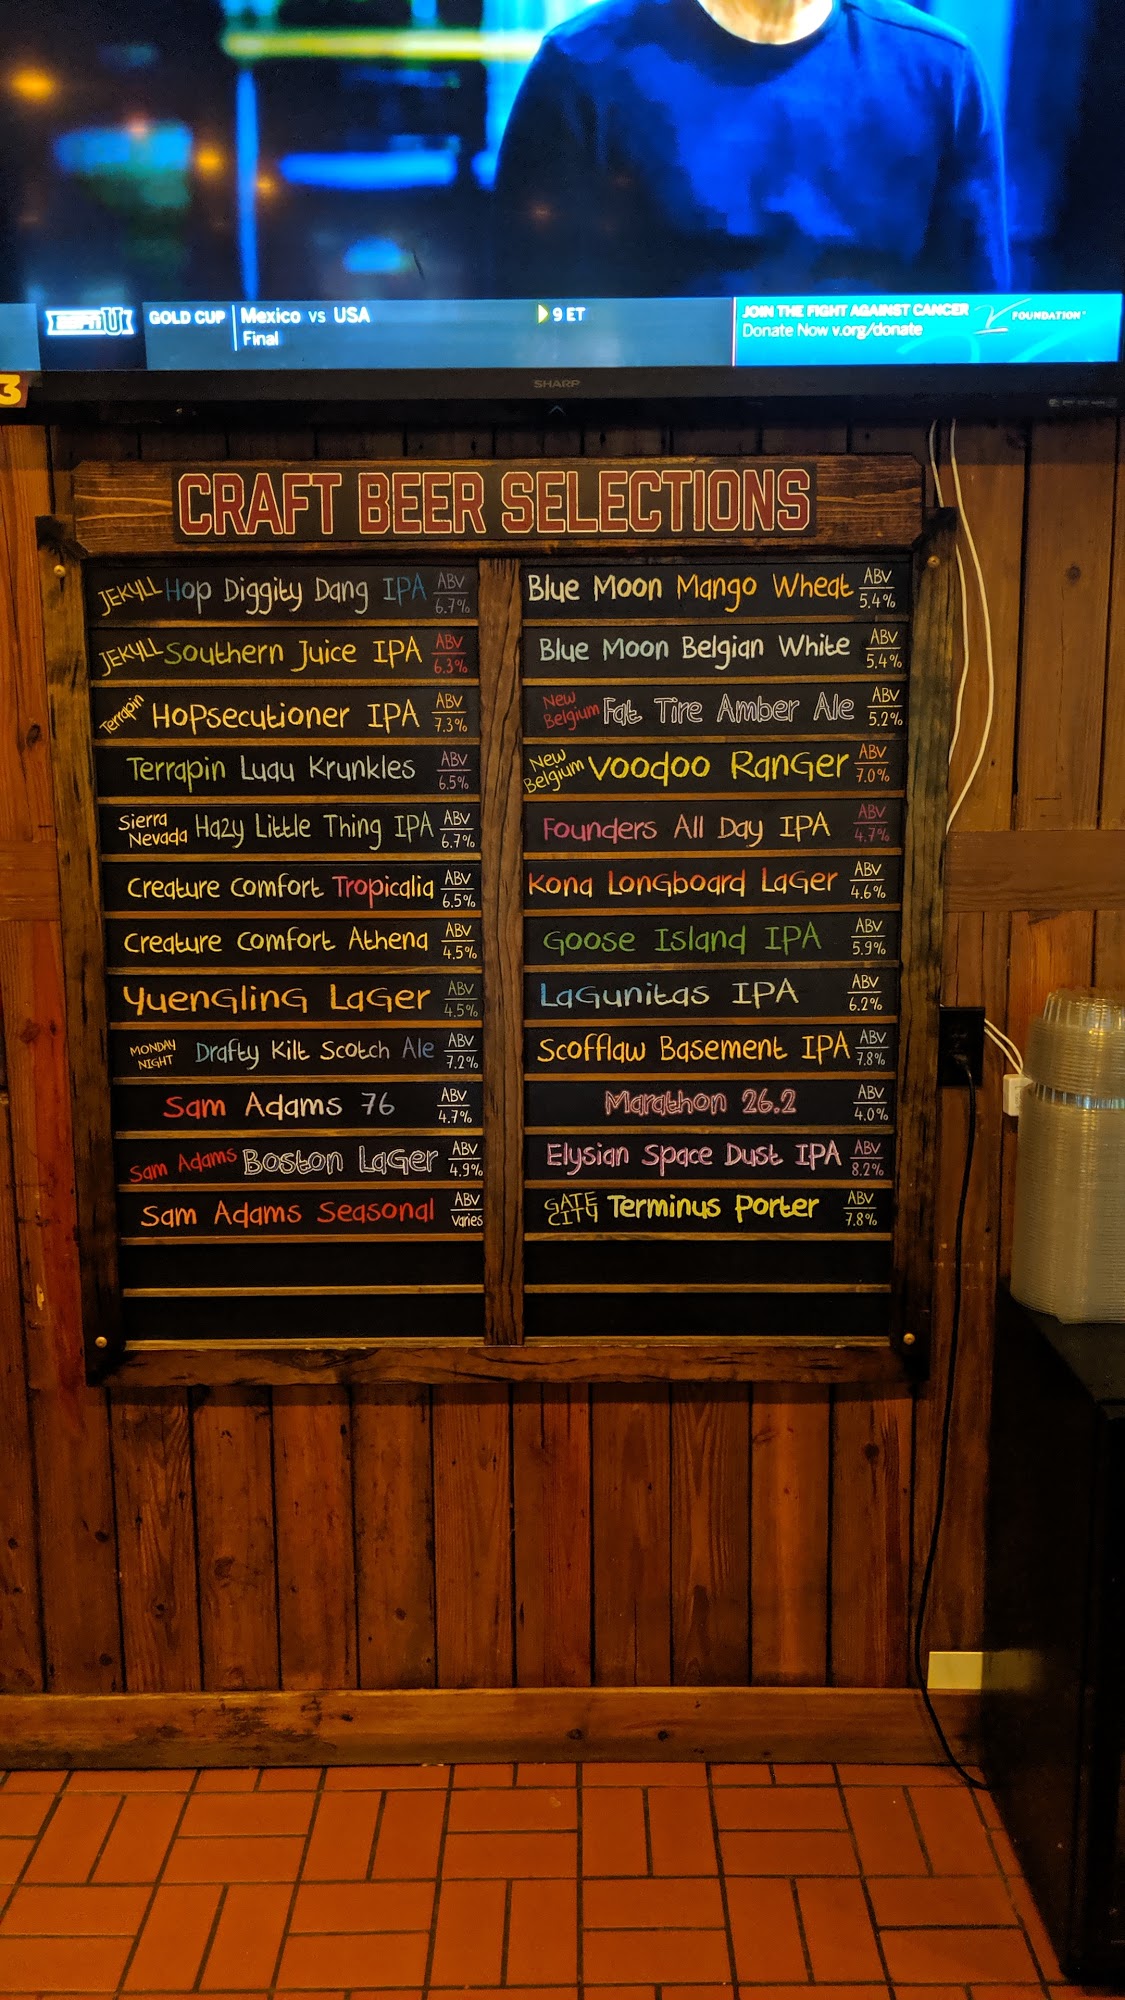 ESPNU
GOLD CUP
Mexico vs USA
Final
9 ET
JOIN THE FIGHT AGAINST CANCER
Donate Now v.org/donate
V FOUNDATION
SHARP
3
CRAFT BEER SELECTIONS
JEKYLL Hop Diggity Dang IPA ABV 6.7%
JEKYLL Southern Juice IPA ABV 6.3%
Terrapin HoPsecutioner IPA ABV 7.3%
Terrapin Luau Krunkles ABV 6.5%
Sierra Nevada Hazy Little Thing IPA ABV 6.7%
Creature Comfort Tropicalia ABV 6.5%
Creature Comfort Athena ABV 4.5%
YuenGlinG LaGer ABV 4.5%
MONDAY NIGHT Drafty Kilt Scotch Ale ABV 7.2%
Sam Adams 76 ABV 4.7%
Sam Adams Boston LaGer ABV 4.9%
Sam Adams Seasonal ABV Varies
Blue Moon Mango Wheat ABV 5.4%
Blue Moon Belgian White ABV 5.4%
New Belgium Fat Tire Amber Ale ABV 5.2%
New Belgium Voodoo RanGer ABV 7.0%
Founders All Day IPA ABV 4.7%
Kona LonGboard LaGer ABV 4.6%
Goose Island IPA ABV 5.9%
LaGunitas IPA ABV 6.2%
Scofflaw Basement IPA ABV 7.8%
Marathon 26.2 ABV 4.0%
Elysian Space Dust IPA ABV 8.2%
GATE CITY Terminus Porter ABV 7.8%